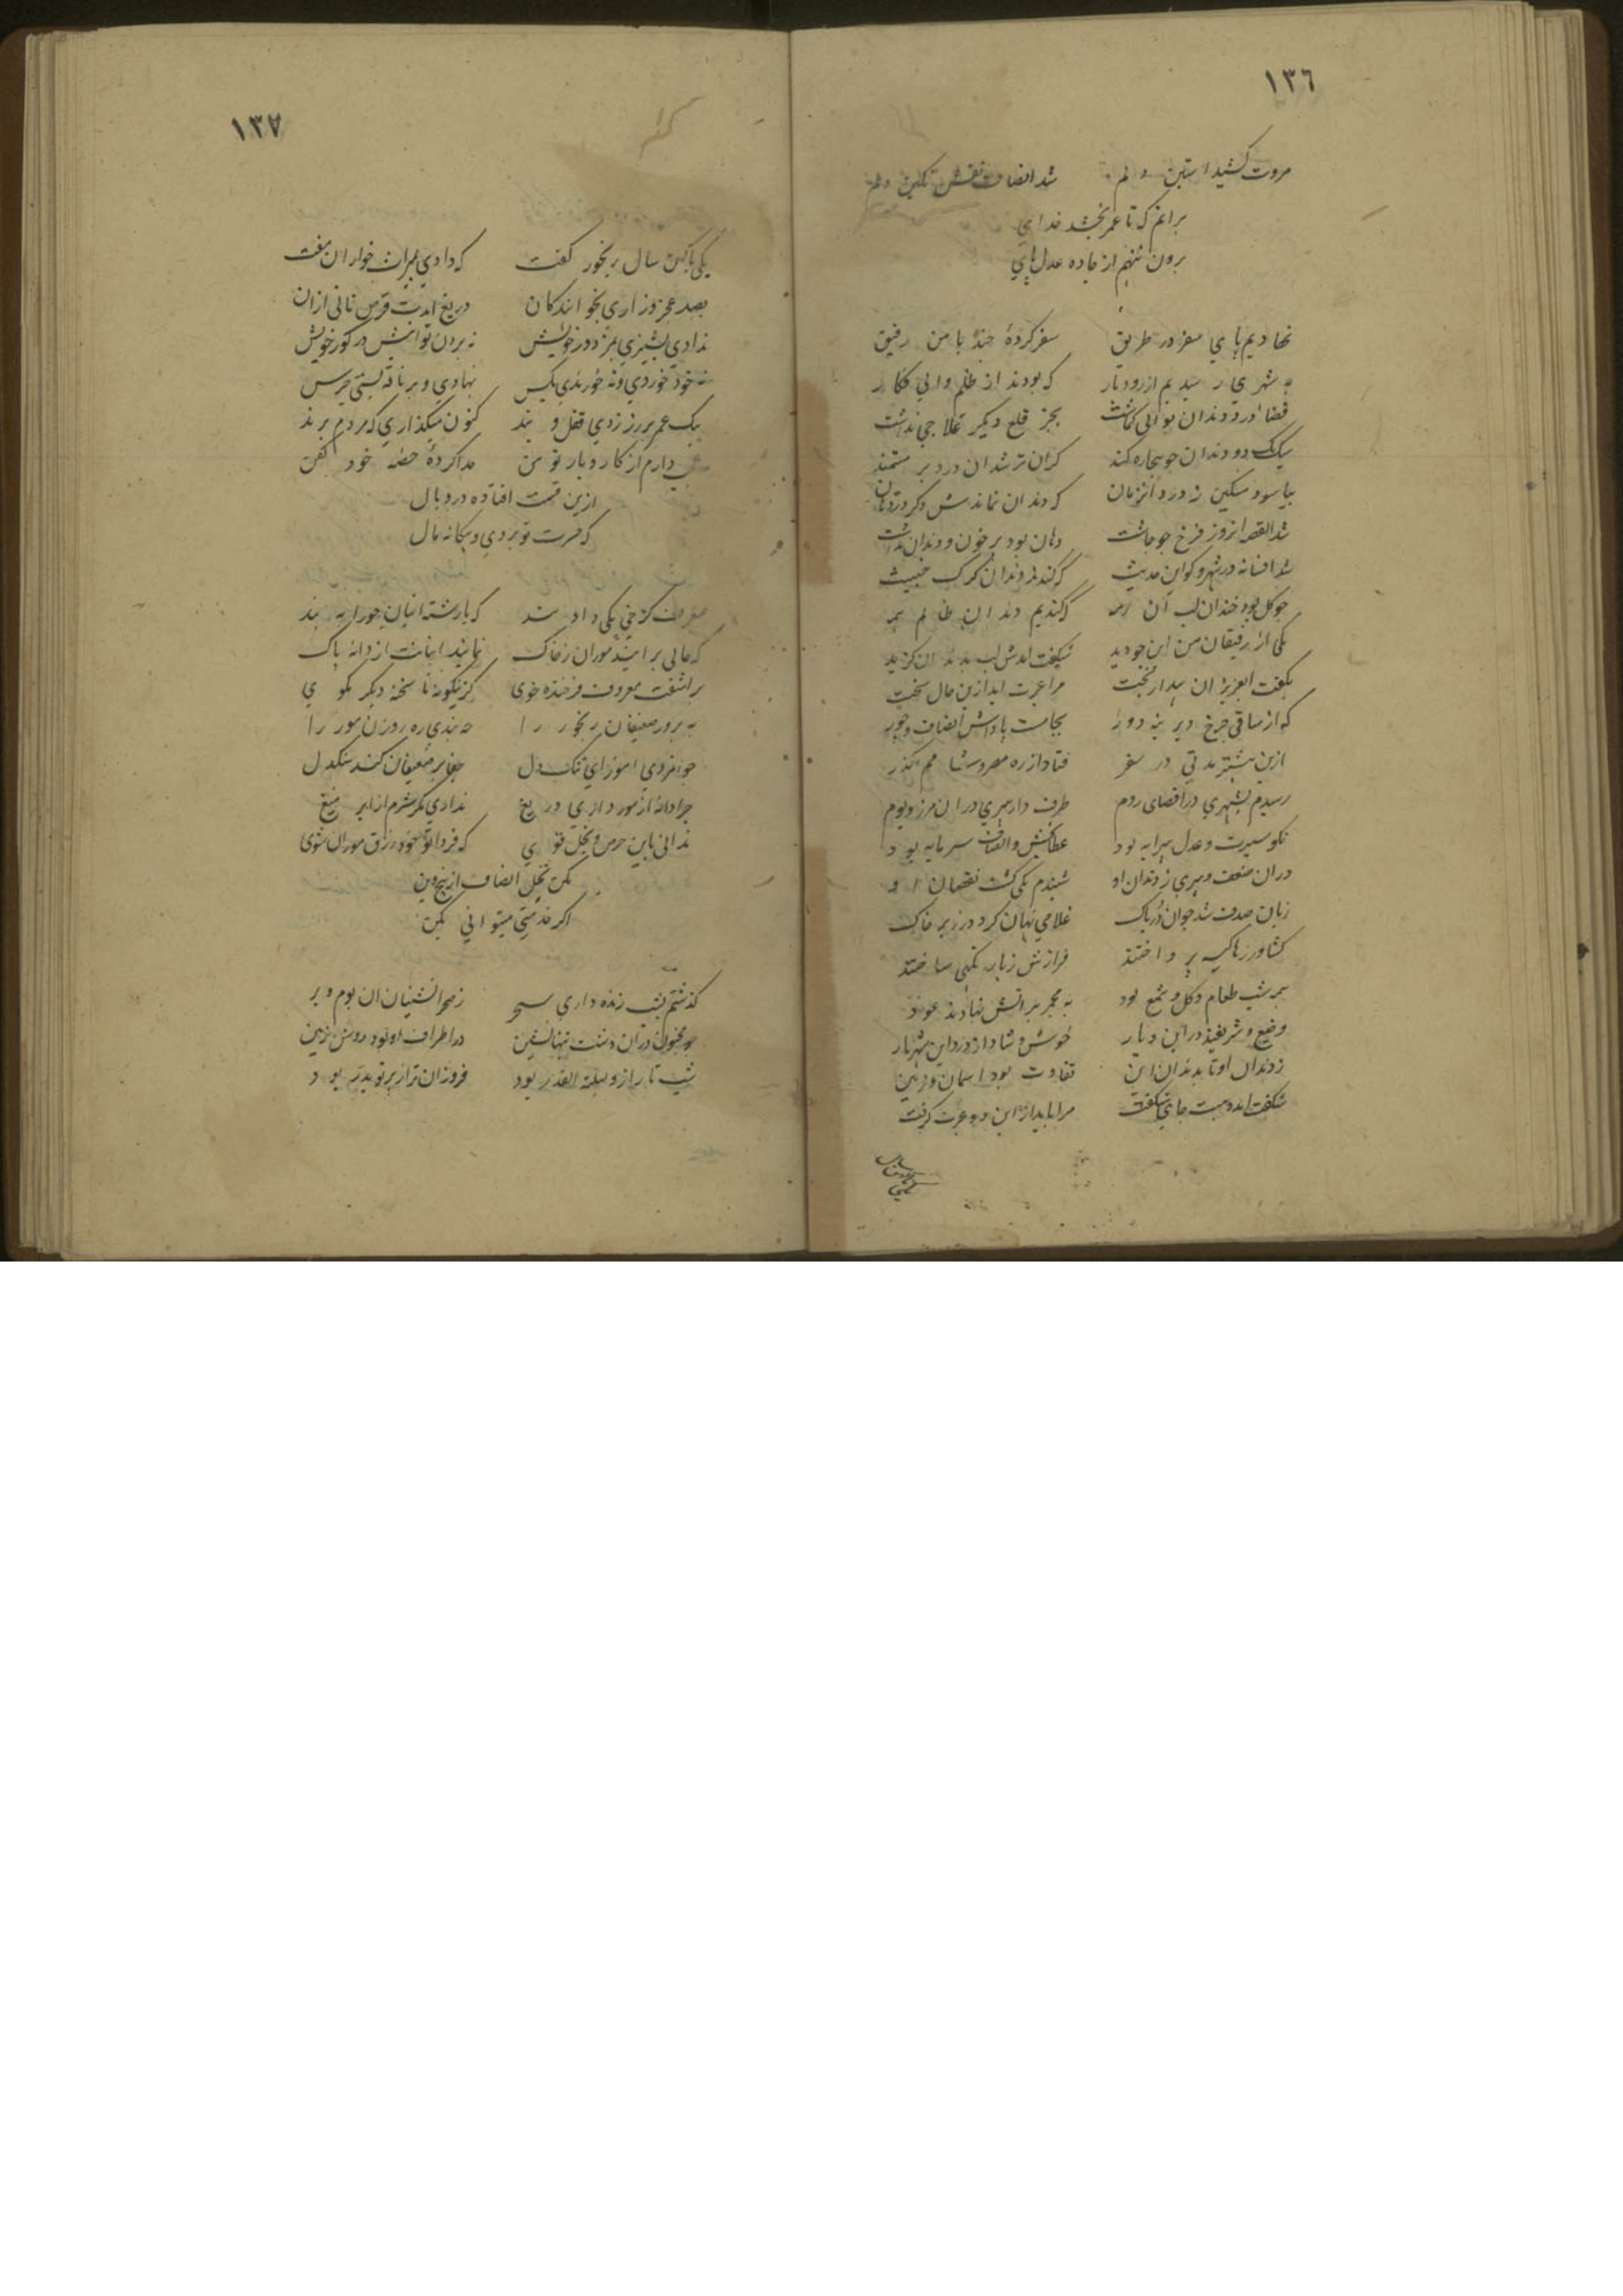 ١٣٦
مروت کشید استین دلم شد انصاف نقش نکین دلم
برانم که تا عمر بخشد خدای
برون ننهم از جاده عدل پای
نهادیم پای سفر در طریق سفر کردهٔ چند با من رفیق
به شهری رسیدیم از رودبار که بودند از ظلم والی فکار
قضا درد دندان بوالی کماشت بجز قلع دیکر علاجی نداشت
یک دو دندان چو بیچاره کند کران تر شد ان درد بر مستمند
بیاسود مسکین ز درد انزمان که دندان نماندش دکر در دهان
شد القصه انروز فرخ چو چاشت دهان بود پر خون و دندان نداشت
شد افسانه در شهر و کو این حدیث که کندند دندان کرک خبیث
چو کل بود خندان لب ان که کندیم دندان ظالم
یکی از رفیقان من این چو دید شکفت امدش لب بدندان کزید
بکفت ایعزیزان بیدار بخت مرا عبرت اید ازین حال سخت
که از ساقی چرخ دیرینه دور بجامست پاداش انصاف و جور
ازین پیشتر مدتی در سفر فتاد از ره مصر و شامم کذر
رسیدم بشهری در اقصای روم طرف دار پیری در ان مرز و بوم
نکو سیرت و عدل پیرایه بود عطابخش و انصاف سرمایه بود
دران ضعف و پیری ز دندان او شنیدم یکی کشت نقصان او
زبان صدف شد چو ان در پاک غلامی نهان کرد در زیر خاک
کشاورزها کیسه پرداختند فرازش زیارتکهی ساختند
بهر شب طعام و کل و شمع بود به مجمر بر اتش نهادند عود
وضیع و شریفند در این دیار خوش و شاد از درد این شهریار
ز دندان او تا بدندان این تفاوت بود اسمان و زمین
شکفت امده‌ست جای شکفت مرا باید از این دو عبرت کرفت
١٣٧
یکی با کهن سال رنجور کفت که دادی بمیراث خواران مفت
بصد عجز و زاری بخوانندکان دریغ ایدت قرص نانی ازان
ندادی پشیزی بمزدور خویش نه بردن توانیش در کور خویش
نه خود خوردی و نه خورندی بکس نهادی و بر ناقه بستی جرس
یک عمر بر زر زدی قفل و بند کنون میکذاری که مردم برند
عجب دارم از کار و بار تو من جدا کردهٔ حصه خود کفن
ازین قسمت افتاده در وبال
که حسرت تو بردی و بیکانه مال
معروف کرخی یکی داد پند که بارشته انبان جو را به بند
که حالی بر ایند موران ز خاک نمانند انبانت از دانه پاک
براشفت معروف فرخنده خوی کزینکونه ناپخته دیکر مکوی
به پرور ضعیفان رنجور را چه بندی ره روزن مور را
جوانمردی اموز ای تنک دل جفا بر ضعیفان کند سنکدل
چرا دانه از مور داری دریغ نداری مکر شرم از ابر میغ
ندانی باین حرص و بخل قوی که فردا تو خود رزق موران شوی
مکن نخل انصاف از بیخ و بن
اکر خدمتی میتوانی بکن
کذشتم بشب زنده داری سحر ز صحرانشینان ان بوم و بر
چو مجنون دران دشت تنهانشین در اطراف او بود روشن زمین
شب تار ازو لیلة القدر بود فروزان‌تر از پرتو بدر بود